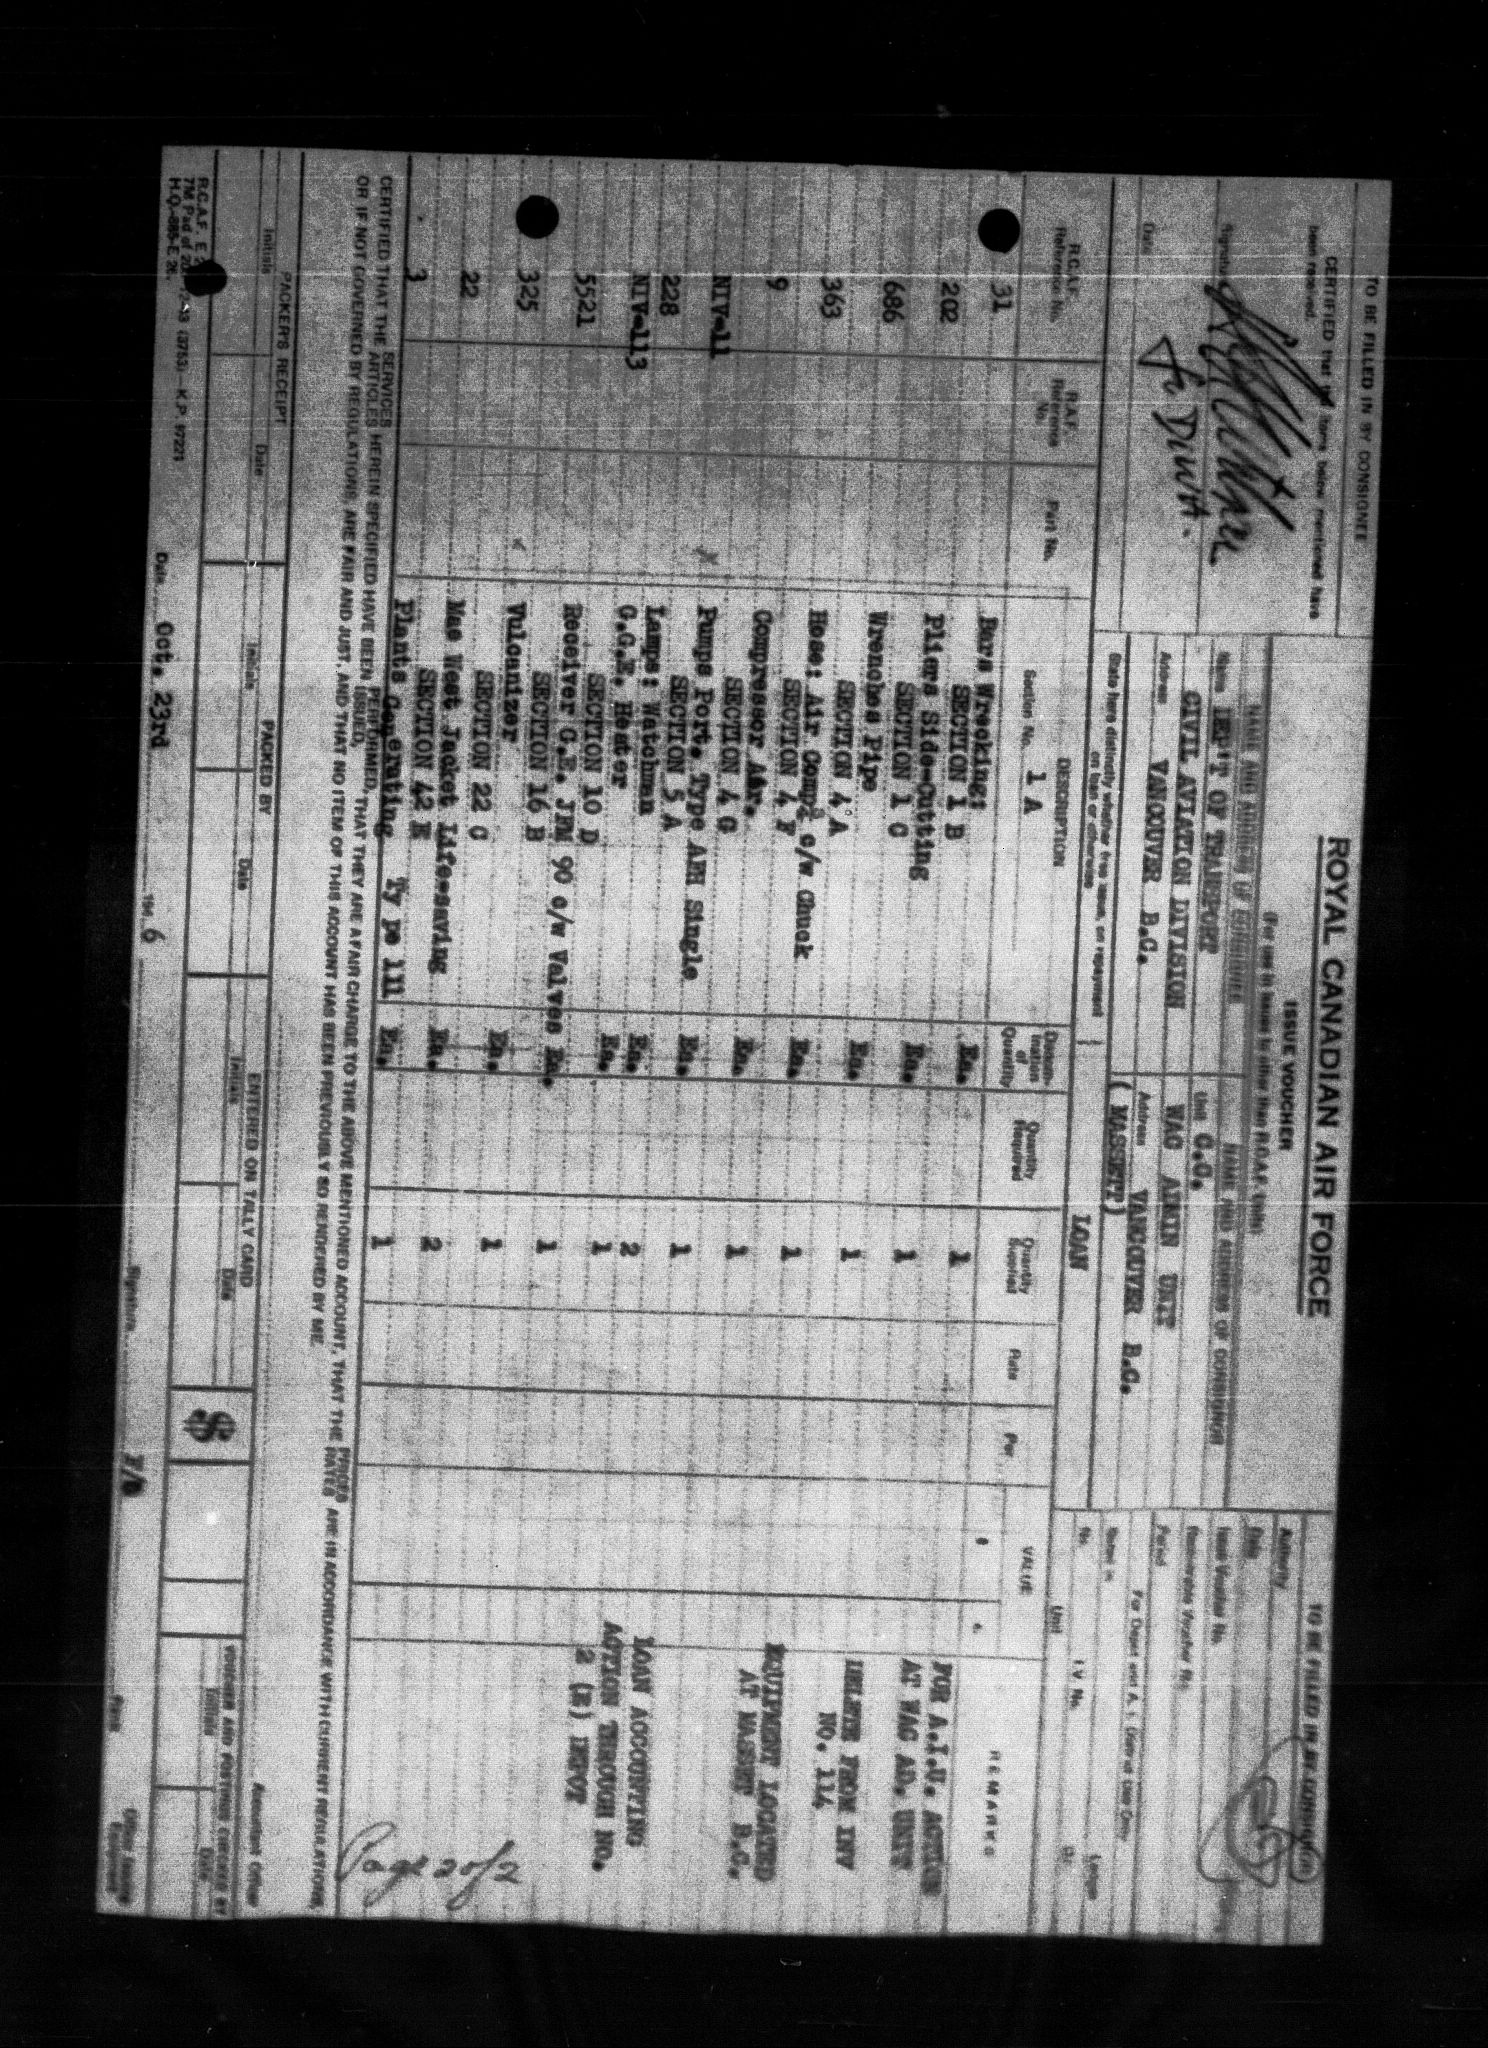 ROYAL CANADIAN AIR FORCE
ISSUE VOUCHER
(For use in issues to other than R.C.A.F. Units)
TO BE FILLED IN BY CONSIGNEE
CERTIFIED that the items below mentioned have
been received.
Signature
Date
NAME AND ADDRESS OF CONSIGNEE
Name DEP'T OF TRANSPORT
CIVIL AVIATION DIVISION
Address VANCOUVER B.C.
State here distinctly whether free issue, on repayment
on loan or otherwise
LOAN
NAME AND ADDRESS OF CONSIGNOR
Unit C.O.
WAC ADMIN UNIT
Address VANCOUVER B.C.
( MASSETT)
TO BE FILLED IN BY CONSIGNOR
Authority
Date
Issue Voucher No.
Period
No. Unit I.V. No.
R.C.A.F. Reference No.
R.A.F. Reference No.
Part No.
DESCRIPTION
Section No. 1 A
Denomination of Quantity
Quantity Required
Quantity Supplied
Rate
Per
VALUE
$ c.
REMARKS
31 Bars Wrecking: Ea. 1
SECTION 1 B
202 Pliers Side-Cutting Ea. 1
SECTION 1 C
686 Wrenches Pipe Ea. 1
SECTION 4 A
363 Hose: Air Comp'd c/w Chuck Ea. 1
SECTION 4 F
9 Compressor Air. Ea. 1
SECTION 4 G
NIV-11 Pumps Port. Type ARH Single Ea. 1
SECTION 5 A
228 Lamps: Watchman Ea. 2
NIV-113 G.G.E. Heater Ea. 1
SECTION 10 D
5521 Receiver G.E. JFM 90 c/w Valves Ea. 1
SECTION 16 B
325 Vulcanizer Ea. 1
SECTION 22 C
22 Mae West Jacket Life-saving Ea. 2
SECTION 42 E
3 Plants Generating Type 111 Ea. 1
FOR A.I.U. ACTION
AT WAC AD. UNIT
DELETE FROM INV
NO. 114
EQUIPMENT LOCATED
AT MASSET B.C.
LOAN ACCOUNTING
ACTION THROUGH NO.
2 (E) DEPOT
Page 2 of 2
CERTIFIED THAT THE SERVICES ARTICLES HEREIN SPECIFIED HAVE BEEN PERFORMED, ISSUED, THAT THEY ARE A FAIR CHARGE TO THE ABOVE MENTIONED ACCOUNT, THAT THE PRICES RATES ARE IN ACCORDANCE WITH CURRENT REGULATIONS,
OR IF NOT GOVERNED BY REGULATIONS, ARE FAIR AND JUST, AND THAT NO ITEM OF THIS ACCOUNT HAS BEEN PREVIOUSLY SO RENDERED BY ME.
Accountant Officer
PACKER'S RECEIPT
Initials Date
PACKED BY
Initials Date
ENTERED ON TALLY CARD
Initials Date
$
VOUCHER AND POSTING CHECKED BY
Initials Date
R.C.A.F. E
7M Pad of
H.Q.-885-E 26.
K.P. 97221
Date Oct. 23rd 194 6
Signature F/O
Rank